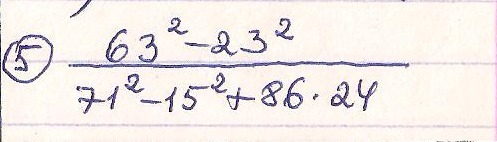 ⑤ 63²-23²
71²-15²+86·24